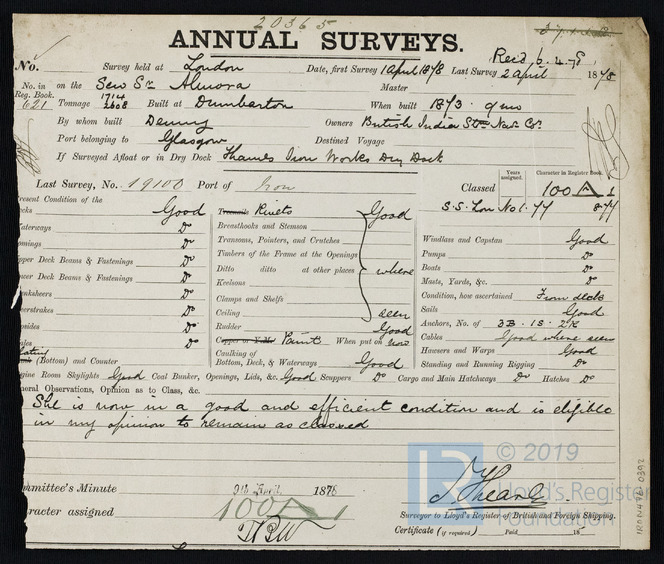 20365
ANNUAL SURVEYS.
No.
Survey held at London Date, first Survey 1 April 1878 Last Survey 2 April 1878
Rec'd 6.4.78
No. in Reg. Book. 621 on the Sew Sr Almora Master
Tonnage 1714 2608 Built at Dumbarton When built 1873. 9 mo
By whom built Denny Owners British India Stm Nav. Co.
Port belonging to Glasgow Destined Voyage
If Surveyed Afloat or in Dry Dock Thames Iron Works Dry Dock
Last Survey, No. 19100 Port of Iron Classed
Years assigned.
Character in Register Book.
100 A 1
S.S. Lon No 1. 77 8.77
resent Condition of the
ecks Good
aterways Do
omings Do
pper Deck Beams & Fastenings Do
ower Deck Beams & Fastenings Do
anksheers Do
perstrakes Do
opsides Do
ales Do
lating (Bottom) and Counter
Treenails Rivets Good
Breasthooks and Stemson
Transoms, Pointers, and Crutches
Timbers of the Frame at the Openings
Ditto ditto at other places where
Keelsons
Clamps and Shelfs
Ceiling seen
Rudder Good
Copper or Y.M. Paint When put on now
Caulking of Bottom, Deck, & Waterways Good
Windlass and Capstan Good
Pumps Do
Boats Do
Masts, Yards, &c. Do
Condition, how ascertained From decks
Sails Good
Anchors, No. of 3B. 1S. 2K
Cables Good where seen
Hawsers and Warps Good
Standing and Running Rigging Do
ngine Room Skylights Good Coal Bunker, Openings, Lids, &c. Good Scuppers Do Cargo and Main Hatchways Do Hatches Do
neral Observations, Opinion as to Class, &c.
She is now in a good and efficient condition and is eligible
in my opinion to remain as classed
mmittee's Minute 9th April, 1878
aracter assigned 100 A 1
Surveyor to Lloyd's Register of British and Foreign Shipping.
Certificate (if required) Paid 18
© 2019
LR
Lloyd's Register
Foundation
IRON476-0392